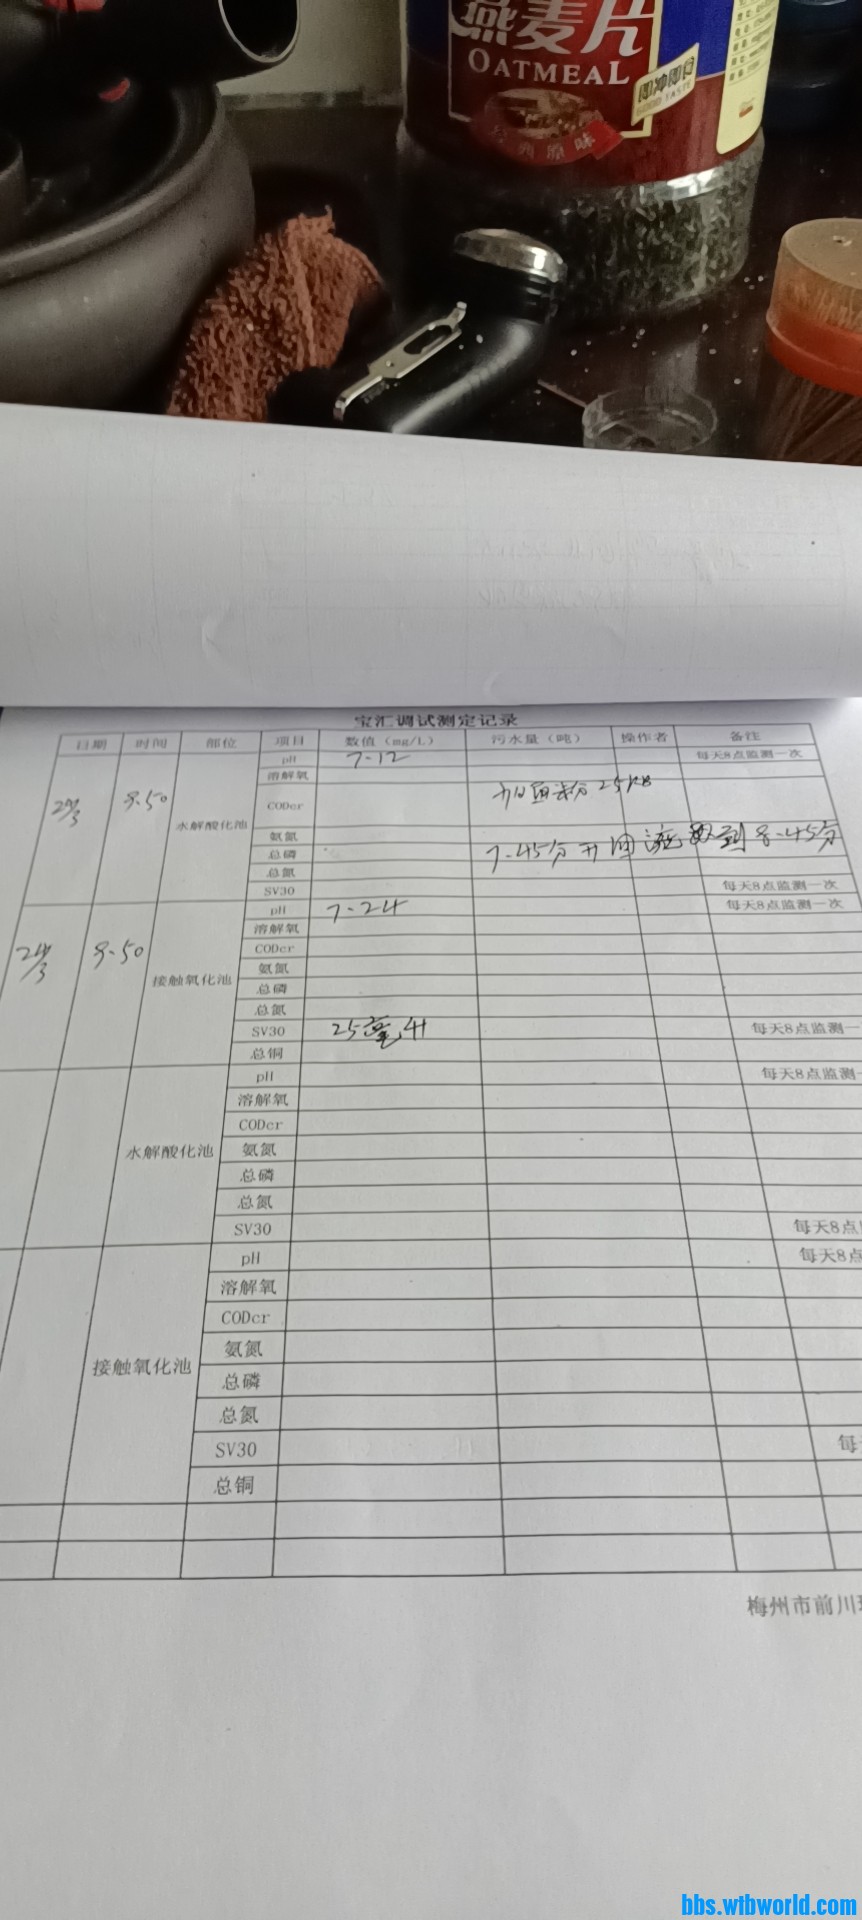 燕麦片
OATMEAL
即冲即食
GOOD TASTE
经典原味
宝汇调试测定记录
日期 时间 部位 项目 数值（mg/L） 污水量（吨） 操作者 备注
pH 7-12 每天8点监测一次
溶解氧
CODcr 加面粉25KB
水解酸化池
氨氮
总磷 7-45分开 到8-45分
总氮
SV30 每天8点监测一次
pH 7-24 每天8点监测一次
溶解氧
CODcr
氨氮
接触氧化池
总磷
总氮
SV30 25毫升 每天8点监测一
总铜
pH 每天8点监测一
溶解氧
CODcr
水解酸化池 氨氮
总磷
总氮
SV30 每天8点
pH 每天8点
溶解氧
CODcr
氨氮
接触氧化池
总磷
总氮
SV30 每
总铜
梅州市前川
bbs.wtbworld.com